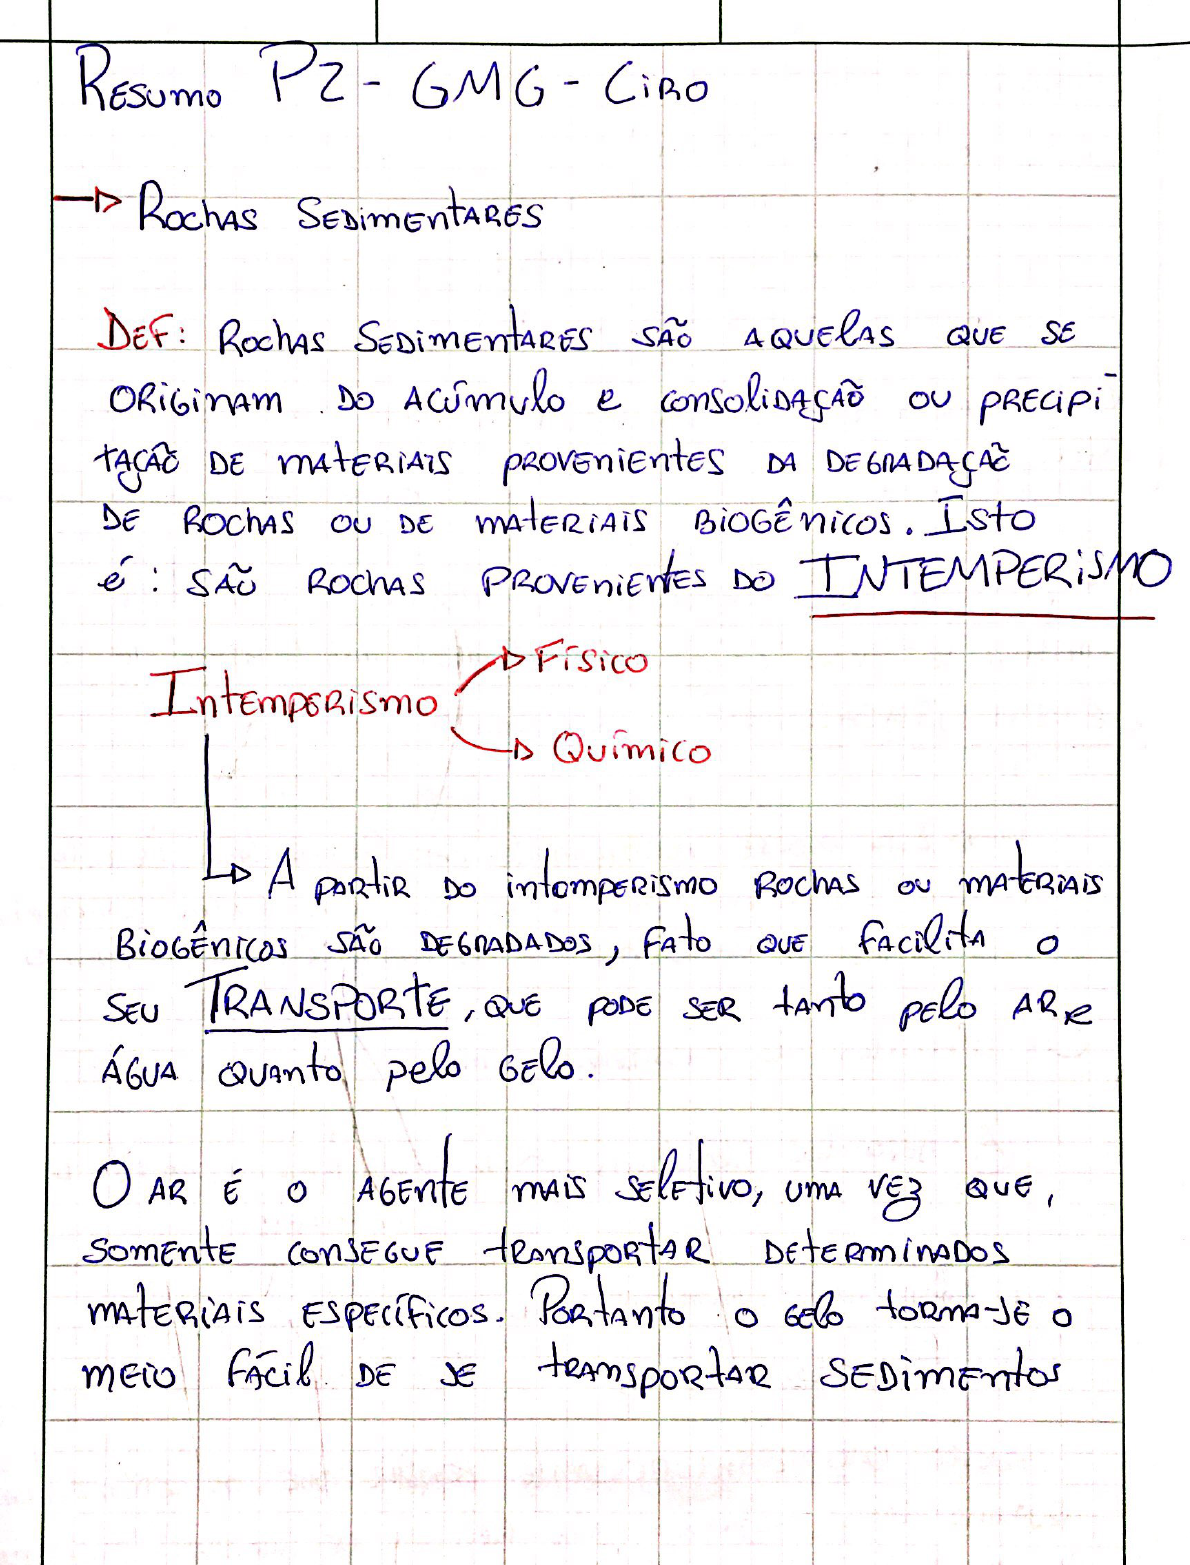 Resumo P2 - GMG - Ciro
Rochas Sedimentares
Def: Rochas sedimentares são aquelas que se
originam do acúmulo e consolidação ou precipi-
tação de materiais provenientes da degradação
de rochas ou de materiais biogênicos. Isto
é: são rochas provenientes do INTEMPERISMO
Físico
Intemperismo
Químico
A partir do intemperismo rochas ou materiais
biogênicos são degradados, fato que facilita o
seu TRANSPORTE, que pode ser tanto pelo ar e
água quanto pelo gelo.
O ar é o agente mais seletivo, uma vez que,
somente consegue transportar determinados
materiais específicos. Portanto o gelo torna-se o
meio fácil de se transportar sedimentos